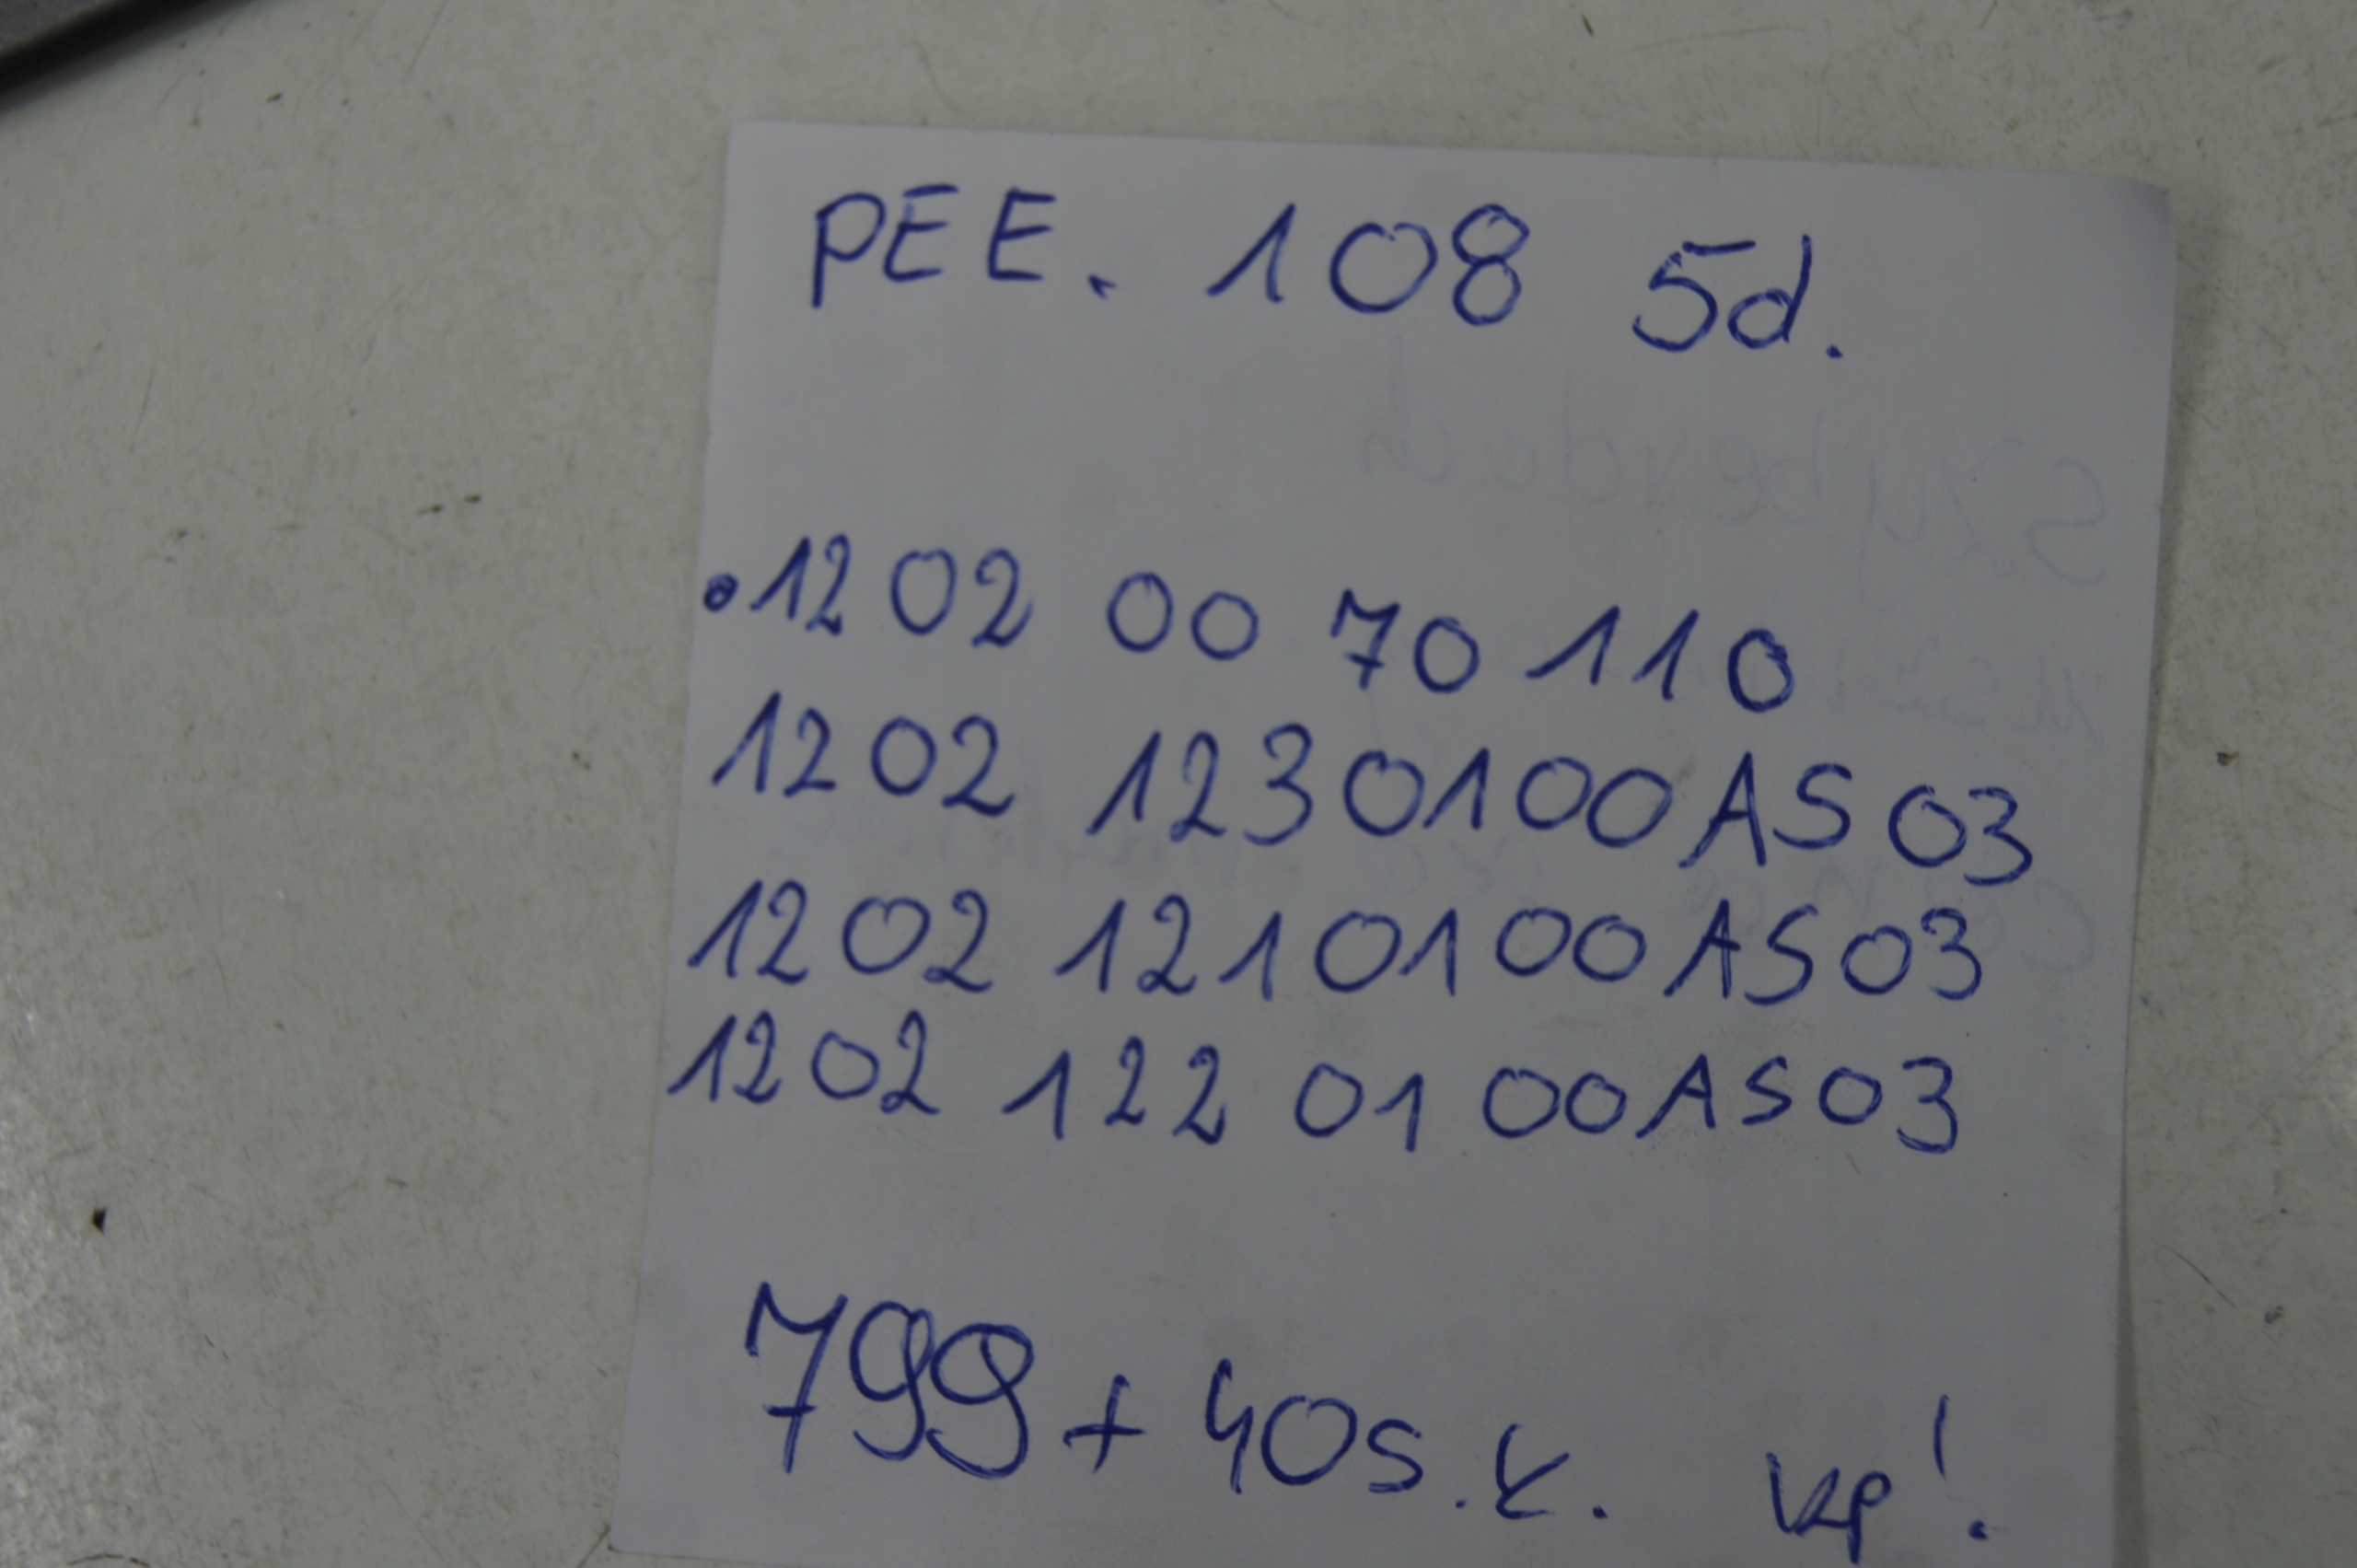 PEE. 108 5d.
•1202 00 70 110
1202 1230100AS03
1202 1210100AS03
1202 122 0100AS03
799 + 40 s.k. vzp!